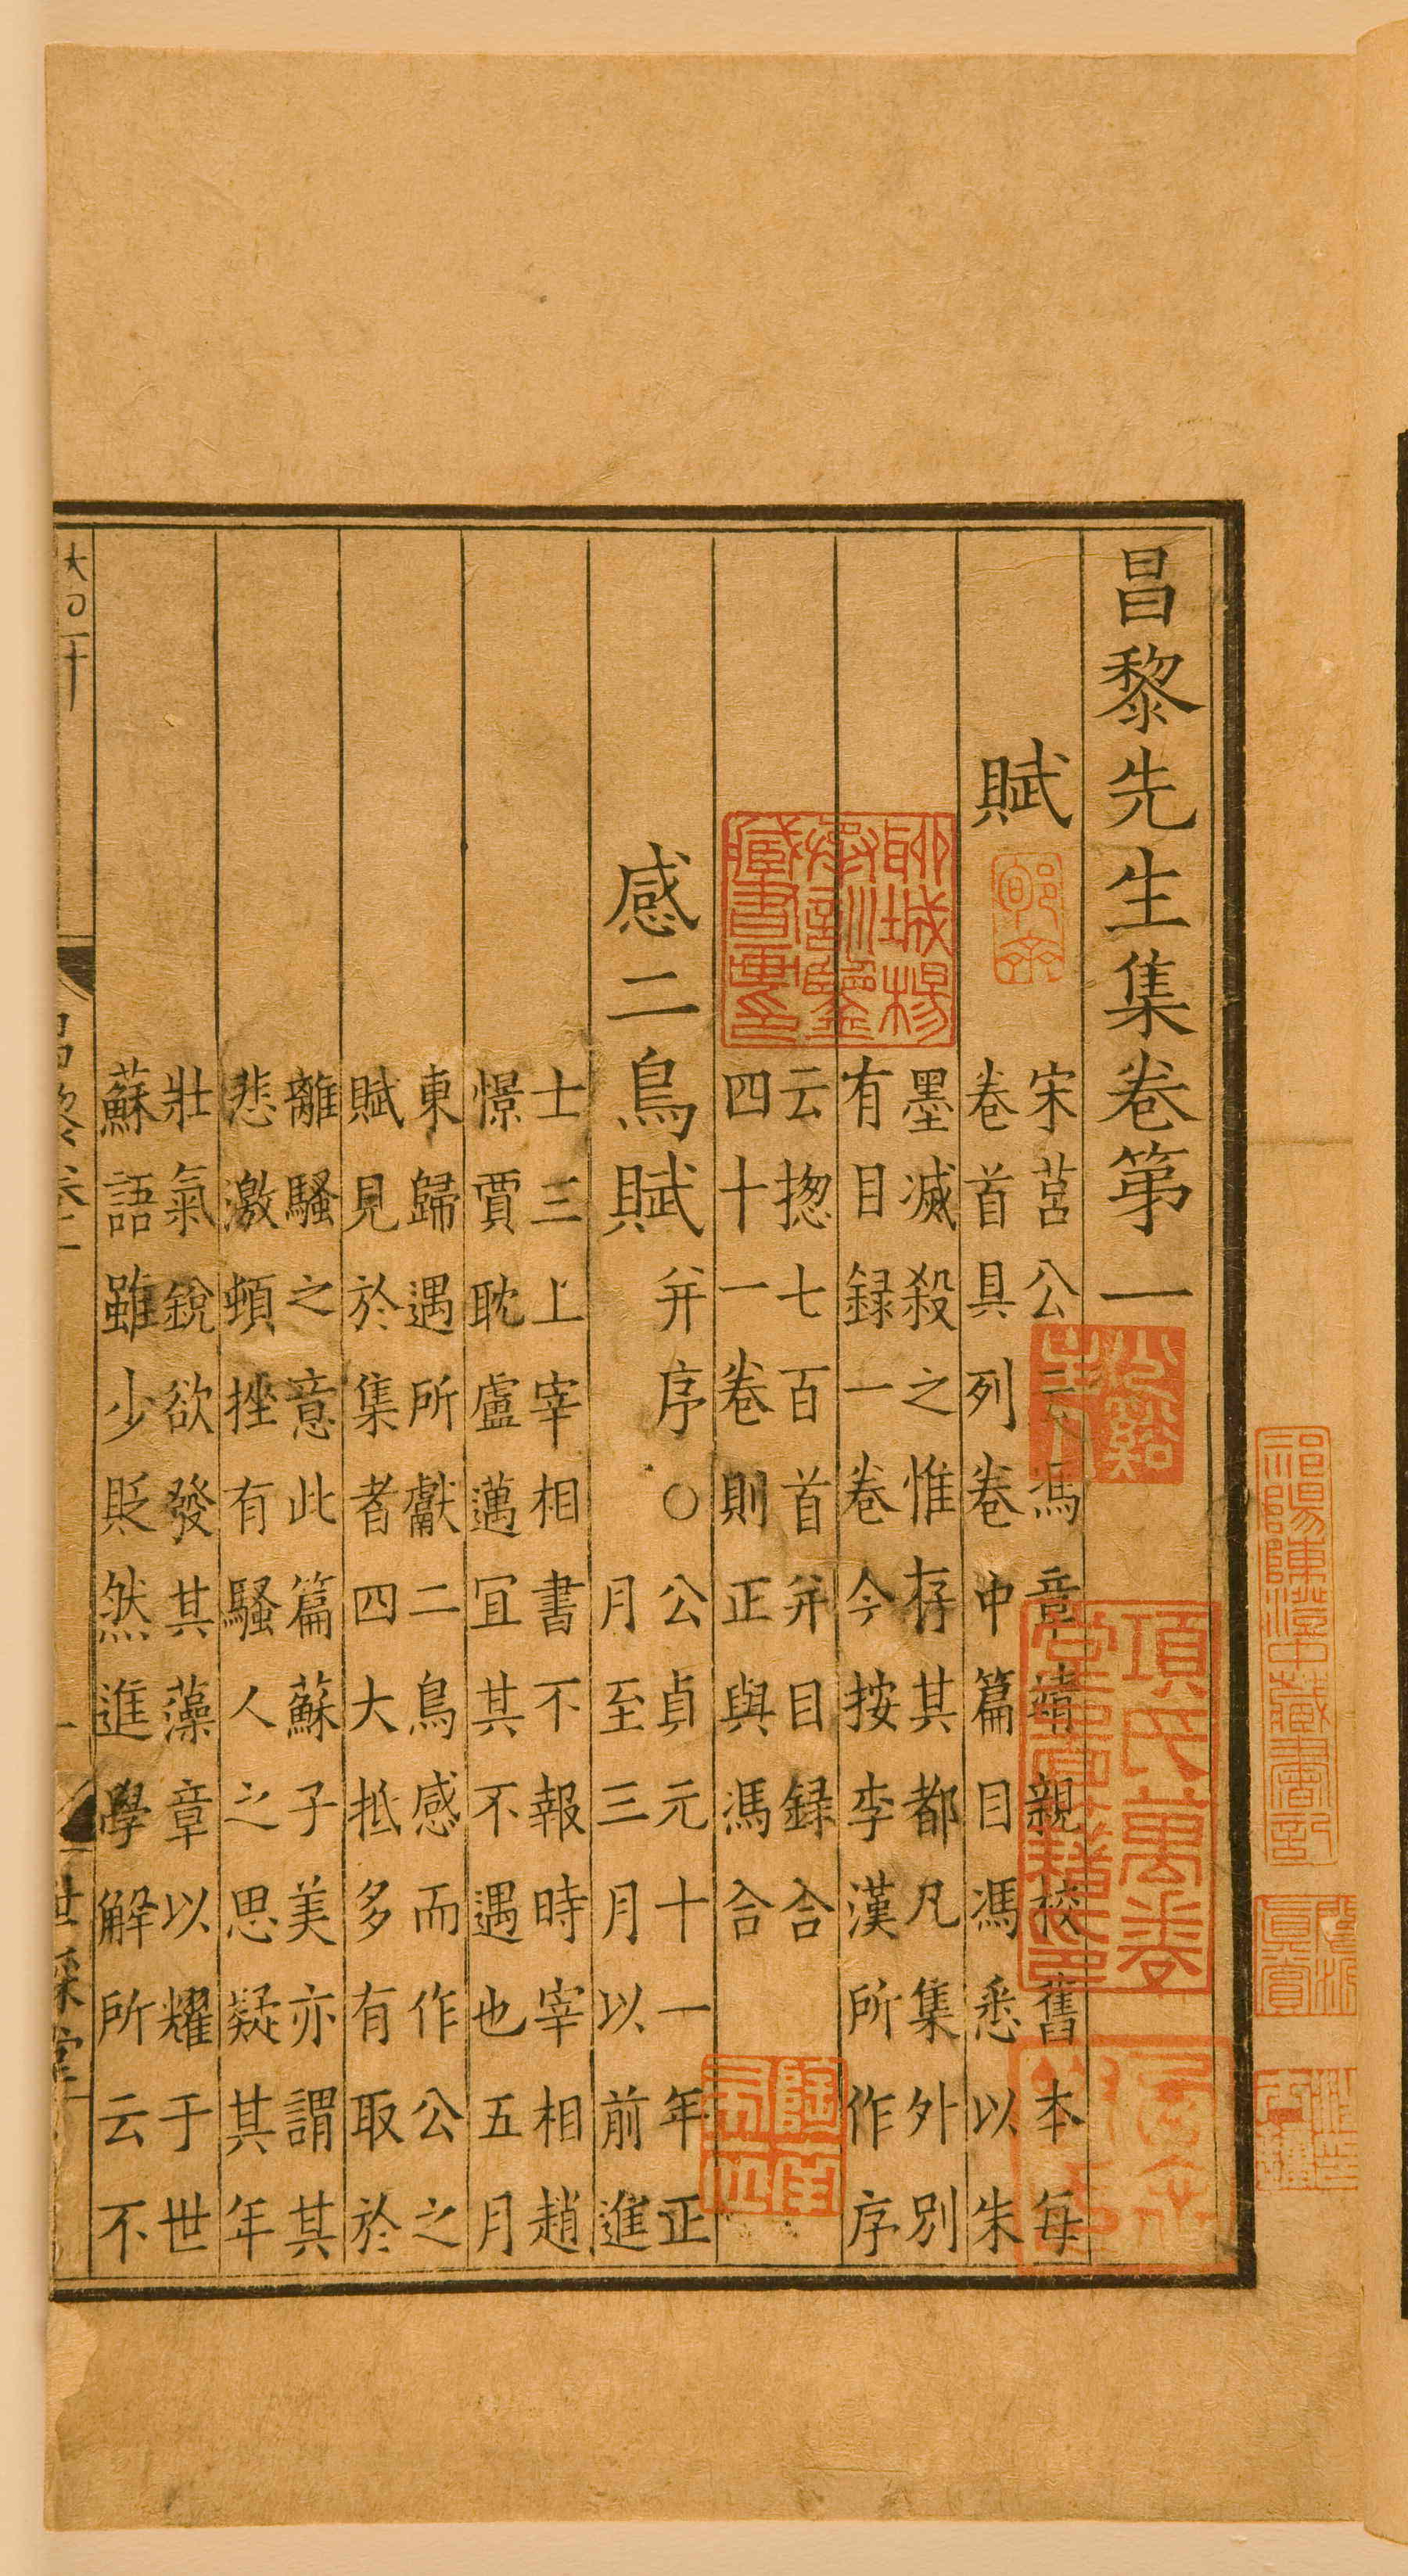 昌黎先生集卷第一
賦
宋莒公云馮章靖親校舊本每
卷首具列卷中篇目馮悉以朱
墨滅殺之惟存其都凡集外別
有目録一卷今按李漢所作序
云揔七百首并目録合
四十一卷則正與馮合
感二鳥賦
并序〇公貞元十一年正
月至三月以前進
士三上宰相書不報時宰相趙
憬賈耽盧邁宜其不遇也五月
東歸遇所獻二鳥感而作公之
賦見於集者四大抵多有取於
離騷之意此篇蘇子美亦謂其
悲激頓挫有騷人之思疑其年
壯氣銳欲發其藻章以耀于世
蘇語雖少貶然進學解所云不
聊城楊
承訓鑒
藏書畫印
項氏萬卷
堂圖籍印
祁陽陳澄中藏書記